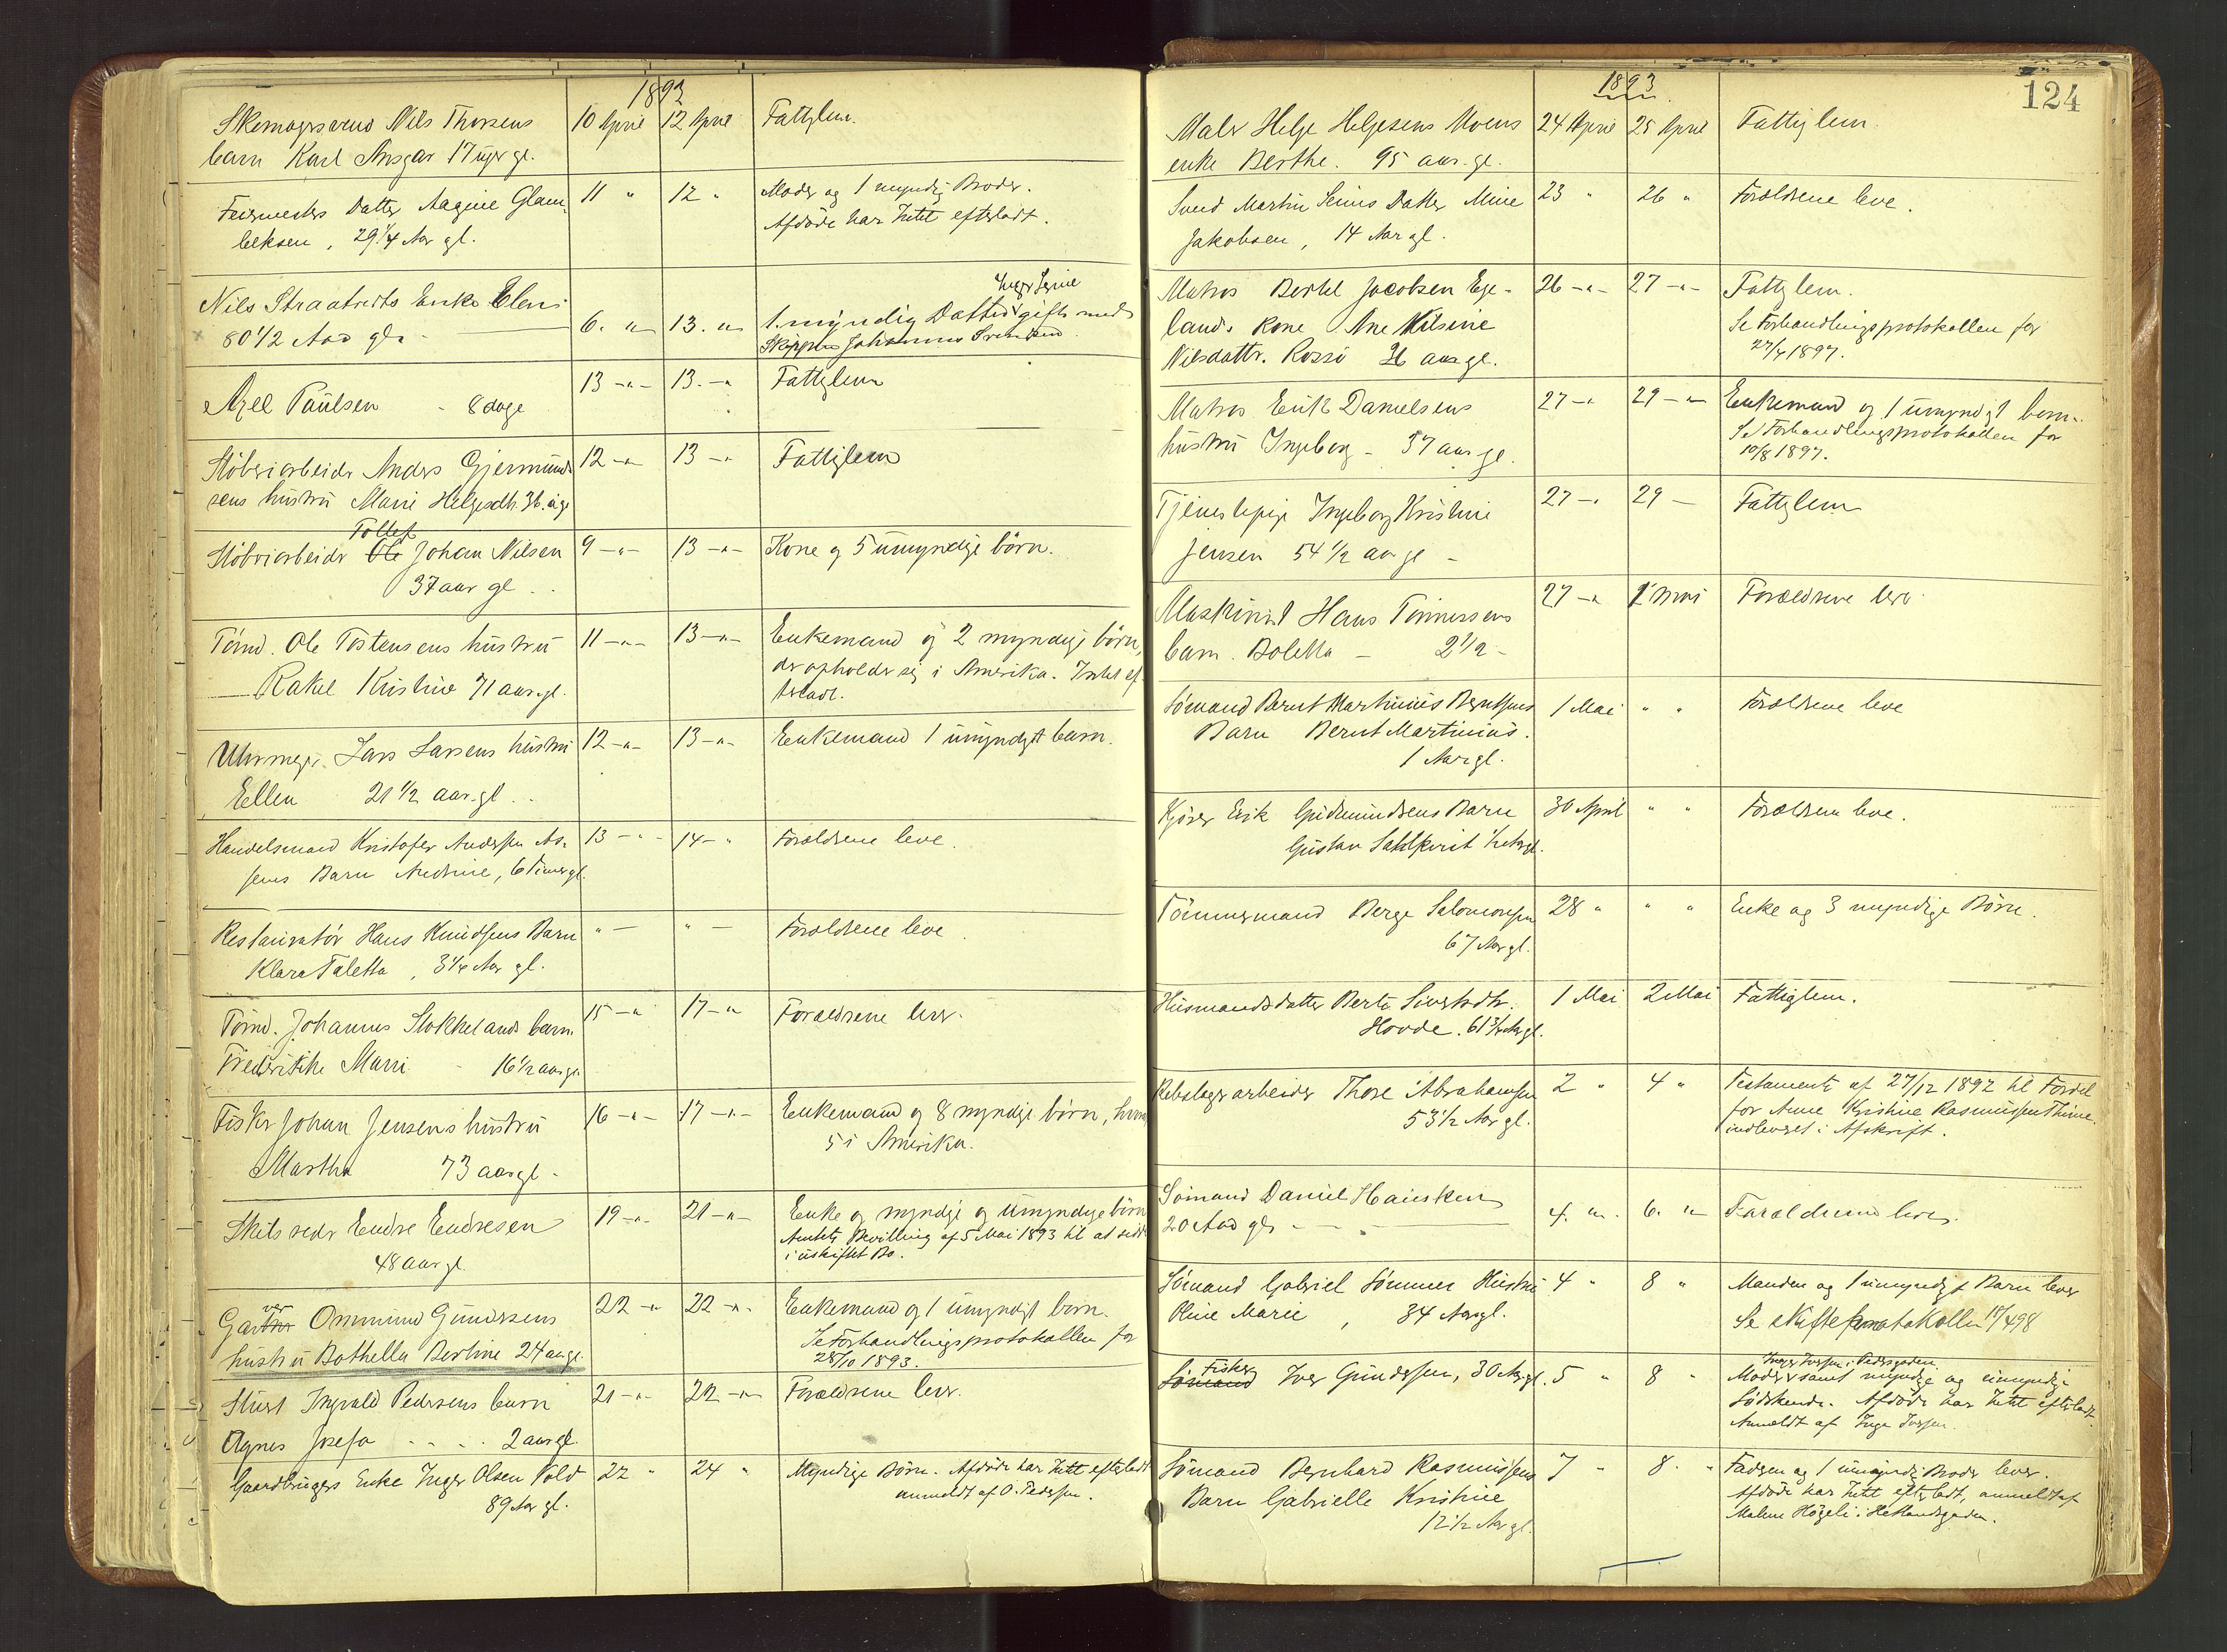 1893
Skomagersvend Nils Thorsens 10 April 12 April Fattiglem.
barn Karl Ansgar 17 uger gl.
Feiermesters Datter Aagine Glam- 11 " 12 " Moder og 1 myndig Broder.
beksen, 29 1/4 Aar gl. Afdøde har Intet efterladt.
Nils Straatveits Enke Elen Inger Serine
80 1/2 Aar gl. 6. " 13. " 1 myndig Datter gift med
Skipper Johannes Svendsen
Axel Paulsen - 8 dage 13 -"- 13. -" Fattiglem
Støberiarbeider Anders Gjermund- 12 -"- 13 -" Fattiglem
sens hustru Marie Helgesdtr. 36. a. gl
Tollef
Støberiarbeidr Ole Johan Nilsen 9 -"- 13 -"- Kone og 5 umyndige børn.
37 aar gl.
Tømd. Ole Tostensens hustru 11 -"- 13 -"- Enkemand og 2 myndige børn,
Rakel Kristine 71 aar gl. der opholder sig i Amerika. Intet ef-
terladt.
Uhrmager Lars Larsens hustru 12 -"- 13 -"- Enkemand 1 umyndigt barn.
Ellen 21 1/2 aar gl.
Handelsmand Kristofer Andersen As- 13 - " 14 - " Forældrene leve.
sens Barn Andrine, 6 Timer gl.
Restauratør Hans Knudsens Barn " - " - Forældrene leve.
Klara Taletta, 3 1/4 Aar gl.
Tømd. Johannes Stokkelands barn 15 -" 17 -" Forældrene lever.
Frederikke Marie 16 1/2 aar gl
Fisker Johan Jensens hustru 16 -"- 17 -"- Enkemand og 8 myndige børn, hvoraf
Martha 73 aar gl. 5 i Amerika.
Skibsreder Endre Endresen 19 -"- 21 -"- Enke og myndige og umyndige børn
48 aar gl. Amtets Bevilling af 5 Mai 1893 til at sidde
i uskiftet Bo.
Garver Ommund Gundersens 22 -" 22 -"- Enkemand og 1 umyndigt barn.
hustru Bothella Bertine 24 aar gl. Se Forhandlingsprotokollen for
28/10 1893.
Stuert Ingvald Pedersens barn 21 -"- 22 -"- Forældrene lever.
Agnes Josefa 2 aar gl.
Gaardbrugers Enke Inger Olsen Vold 22 " 24 " Myndige Børn. Afdøde har Intet efterladt
89 Aar gl. anmeldt af O. Pedersen.
124
1893
Maler Helge Helgesens Moens 24 April 25 April Fattiglem.
enke Berthe. 95 aar. gl.
Svend Martin Seines Datter Mine 23 " 26 " Forældrene leve.
Jakobsen, 14 Aar gl.
Matros Bertel Jacobsen Ege- 26 -"- 27 -"- Fattiglem.
lands Kone Ane Nilsine Se Forhandlingsprotokollen for
Nilsdattr. Rossø 36 aar gl. 27/7 1897.
Matros Erik Danielsens 27 -" 29 -"- Enkemand og 1 umyndigt barn.
hustru Ingeborg - 37 aar gl. Se Forhandlingsprotokollen for
10/8 1897.
Tjenestepige Ingeborg Kristine 27 -" 29 - Fattiglem
Jensen 54 1/2 aar gl -
Maskinist Hans Tønnessens 27 -" 1 Mai Forældrene lever.
barn. Boletta - 2 1/2 -
Sømand Bernt Martinius Berntsens 1 Mai " " Forældrene leve
Barn Bernt Martinius.
1 Aar gl.
Kjører Erik Gudmundsens Barn 30 April " " Forældrene leve.
Gustav
Tømmermand Berge Salomonsen 28 " " " Enke og 3 myndige Børn.
67 Aar gl.
Husmandsdatter Berte Sivertsdtr. 1 Mai 2 Mai Fattiglem.
Hovde. 61 3/4 Aar gl.
Rebslagerarbeider Thore Abrahamsen 2 " 4 " Testamente af 27/12 1892 til Fordel
53 1/2 Aar gl. for Anne Kristine Rasmussen Thime
indleveret i Afskrift.
Sømand Daniel Hansken
20 Aar gl. 4. " 6. " Forældrene lever.
Sømand Gabriel Sømmes Hustru 4 " 8 " Manden og 1 umyndigt Barn lever
Oline Marie, 34 Aar gl. Se Skifteprotokollen 17/498
Fisker Inger Iversen i Pedersgaden
Sømand Iver Gundersen, 30 Aar gl. 5 " 8 " Moder samt myndige og umyndige
Sødskende. Afdøde har Intet efterladt
Anmeldt af Inger Iversen.
Sømand Bernhard Rasmussens 7 " 8 " Faderen og 1 umyndig Broder lever.
Barn Gabrielle Kristine Afdøde har Intet efterladt, anmeldt af
12 1/2 Aar gl. Malene Høgeli i Hetlandsgaden.